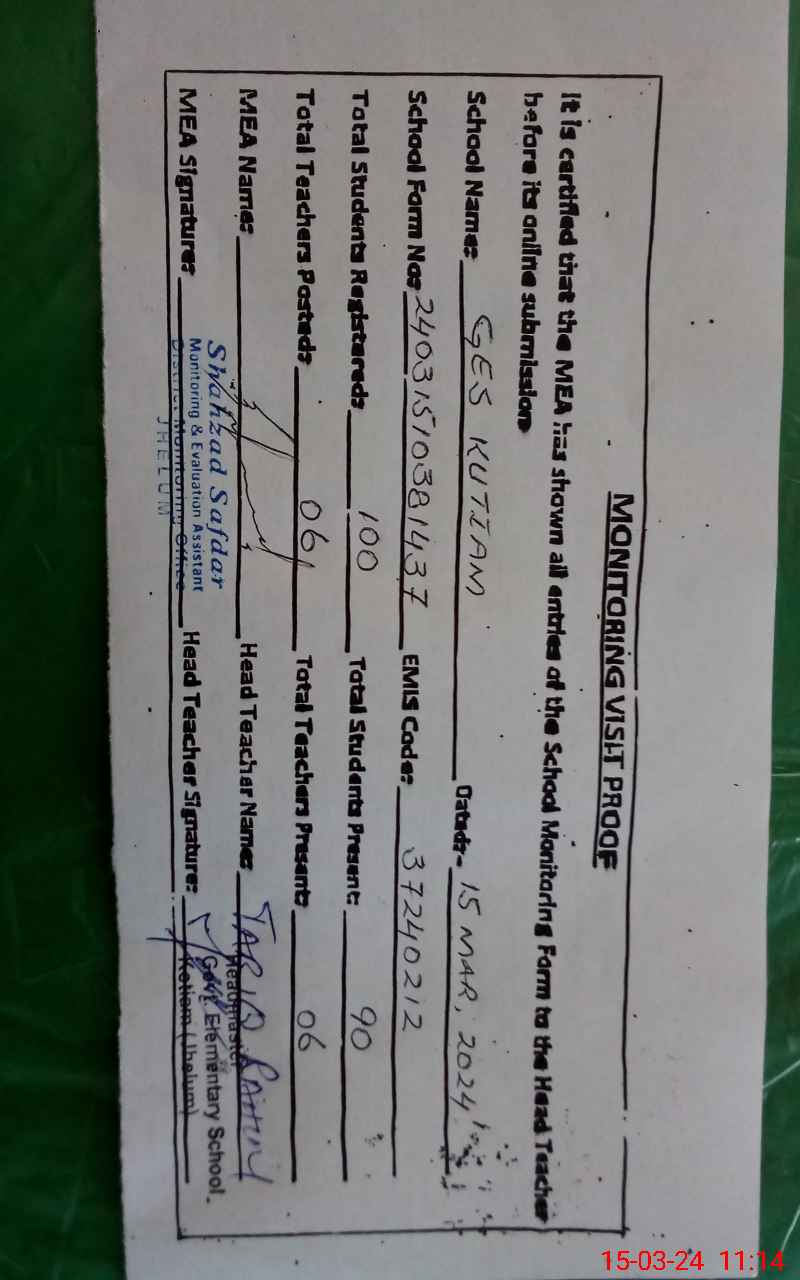 MONITORING VISIT PROOF
It is certified that the MEA has shown all entries of the School Monitoring Form to the Head Teacher
before its online submission
School Name: GES KUTIAM Dated:- 15 MAR, 2024
School Form No: 24031510381437 EMIS Code: 37240212
Total Students Registered: 100 Total Students Present: 90
Total Teachers Posted: 06 Total Teachers Present: 06
MEA Name: Head Teacher Name: TARIQ
MEA Signature: Head Teacher Signature:
Shahzad Safdar
Monitoring & Evaluation Assistant
District Monitoring Office
JHELUM
Headmaster
Govt. Elementary School,
Kotiam (Jhelum)
15-03-24 11:14